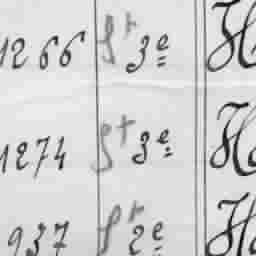 1266 St 3e H
1274 St 3e Ha
937 St 2e Ha